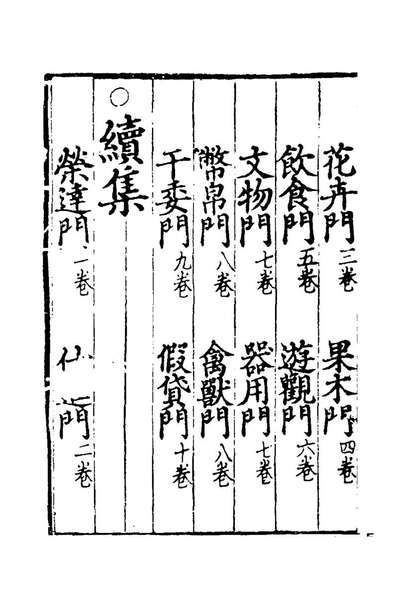 花卉門三卷 果木門四卷
飲食門五卷 遊觀門六卷
文物門七卷 器用門七卷
幣帛門八卷 禽獸門八卷
干委門九卷 假貸門十卷
○續集
榮達門一卷 仕 門二卷